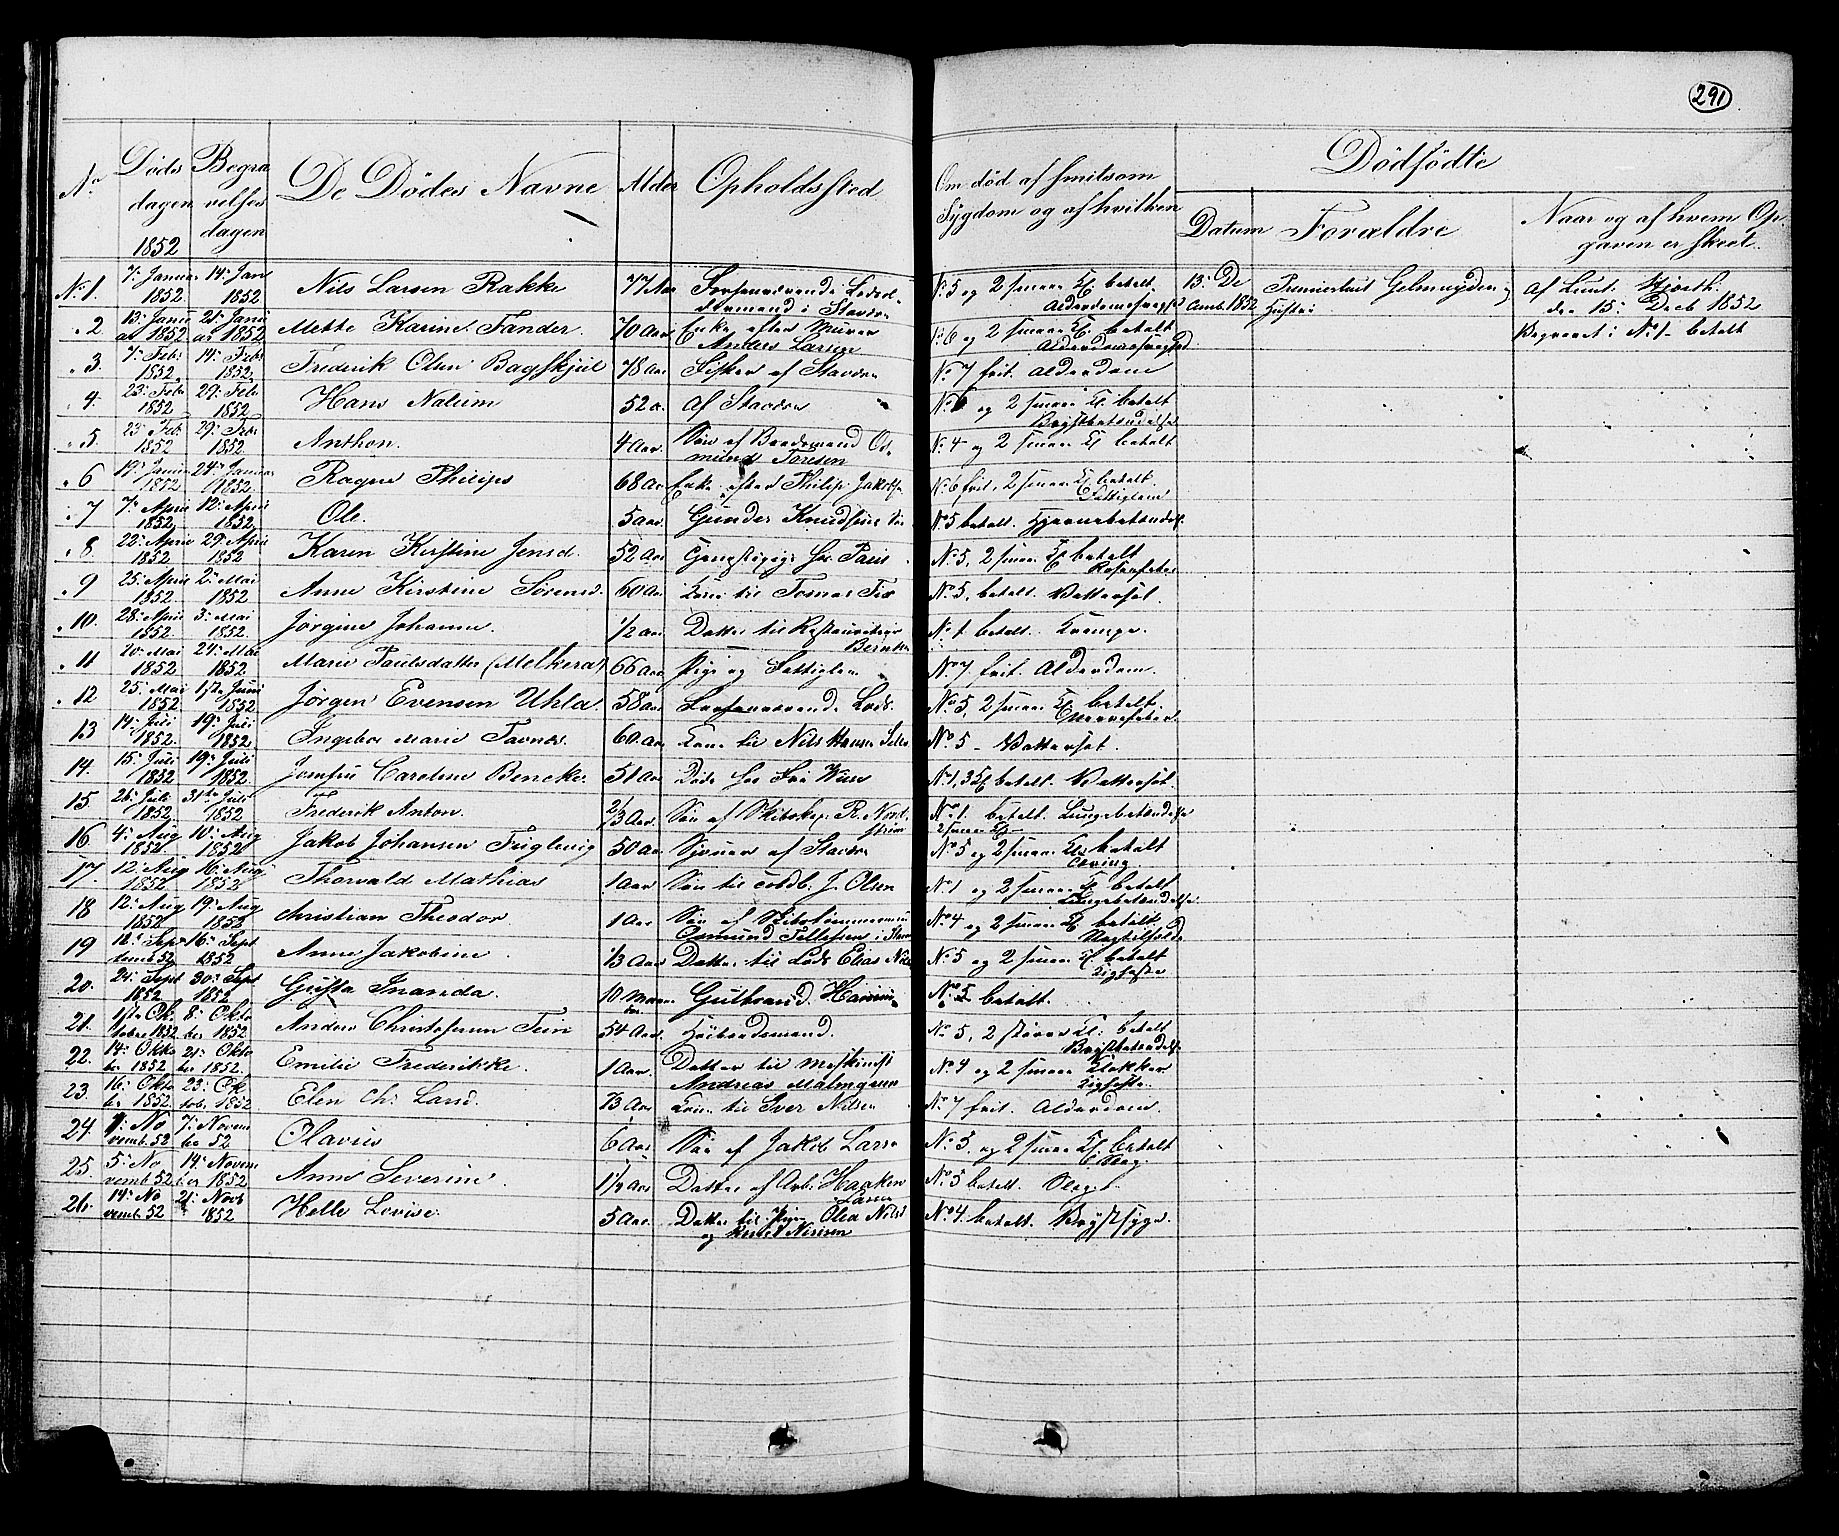 291
No Døds dagen 1852 Begra velses dagen De Dødes Navne Alder Opholdssted Om død af smitsom Sygdom og af hvilken
Dödfödte
Datum Foræeldre Naar og af hvem Op-
gaven er skeet.
No 1. 7: Januar 1852 14: Jan 1852 Nils Larsen Rakke 77 Aar i Stavern No 5 og 2 smaa Kl betalt. Alderdomssvaghed
13: De cemb. 1852 Premierleut Gelmuyden Hustru Af Lieut. Hjorth. den 15: Decb 1852
Begravet i No 1 betalt
" 2 13: Janu ar 1852 21: Janu ar 1852 Mette Karine Tander. 70 Aar Enke efter Murer Anders Larsen No 6 og 2 smaa Kl. betalt Alderdomssvaghed
" 3. 7: Feb: 1852 14: Feb: 1852 Frederik Olsen Bagskjül 78 Aar Fisker af Stavern No 7 frit. Alderdom
" 4. 23: Feb 1852 29: Feb 1852 Hans Nalum 52 a. Af Stavern og 2 smaa Kl. betalt Brystbetændelse
" 5. 23: Feb. 1852 29: Feb 1852 Anthon. 4 Aar Søn af Baadsmand Os- mund Toresen No 4 og 2 smaa Kl betalt
" 6 19: Janu 1852 24: Januar 1852 Ragne Philips 68 Aar Enke efter Philip Jakobse No 6 frit, 2 smaa Kl betalt. Fattiglem
" 7 7: April 1852 12: April 1852 Ole. 5 Aar. Gunder Knudsens Søn No 5 betalt. Hjernebetændelse
" 8. 22: April 1852 29: April 1852 Karen Kirstine Jensd. 52 Aar No 5, 2 smaa Kl betalt
" 9 25: April 1852 2: Mai 1852 Anne Kirstine Sörensd. 60 Aar Kone til Tomas Fix No 5, betalt. Vattersot.
" 10. 28: April 1852 3: Mai 1852 Jörgine Johanne. 1/2 Aar Datter til No 1 betalt. Krampe.
" 11 20: Mai 1852 24: Mai 1852 Marie Paulsdatter (Melkerat) 66 Aar Pige og Fattiglem No 7 frit. Alderdom.
" 12 25: Mai 1852 1ste Juni 1852 Jörgen Evensen Uhla 58 Aar Forhenværende Lods. No 5, 2 smaa Kl betalt. Nervefeber
13 14: Juli 1852 19: Juli 1852 Ingebor Marie Tavnes. 60 Aar Kone til Nils Hansen No 5 - Vattersot.
14. 15: Juli 1852 19: Juli 1852 Jomfru Caroline Beneke. 51 Aar Døde hos No 1, 3 Kl betalt. Vattersot.
15. 26: Juli 1852 31te Juli 1852 Frederik Anton. 2/3 Aar. Søn af Skibskap: R. Nord- No 1. betalt. Lungebetændelse 2 smaa Kl
16 4: Aug 1852 10: Aug 1852 Jakob Johansen Fuglevig 50 Aar Sjouer af Stavern No 5 og 2 smaa Kl: betalt
17. 12: Aug 1852 16: Aug 1852 Thorvald Mathias 1 Aar Søn til J. Olsen No 1 og 2 smaa Kl betalt Lungebetændelse
18 12: Aug 1852 19: Aug 1852 Christian Theodor. 1 Aar Søn af Skibstømmermand Osmund Tellefsen i Stavern No 4 og 2 smaa Kl. betalt
19 12: Sep- temb 52 16: Sept 1852 Anne Jakobine 1/3 Aar Datter til Lods Elias No 5 og 2 smaa Kl. betalt
20. 24: Sept 1852 30: Sept 1852 Gusta Inanda. 10 Maane- der. Gulbrand No 5 betalt.
21. 1ste Ok- tober 1852 8: Okto ber 1852 Anders Christofersen Tein 54 Aar. No 5, 2 større Kl: betalt Brystbetændelse
22. 14: Okto ber 1852 21: Okto ber 1852. Emilie Frederikke. 1 Aar. Datter til Andreas Malmgreen No 4 og 2 smaa Klokker
23. 16: Okto be 1852 23: Ok- tober 1852 Elen Ch: Larsd. 73 Aar Kone til Iver Nilsen No 7 frit. Alderdom.
24. 1: No vemb. 52 7: Novem ber 52 Olavus 6 Aar Søn af Jakob Larse No 5. og 2 smaa Kl. betalt
25. 5: No vemb 52 14: Novem ber 1852 Anne Severine. 1 1/2 Aar Datter af Arb: Haaken Larsen No 5 betalt.
26. 14: No vemb. 52 21: Novb 1852 Helle Lovise. 5 Aar. Datter til Pigen Olea Nilsd og No 4. betalt. Brystsyge.